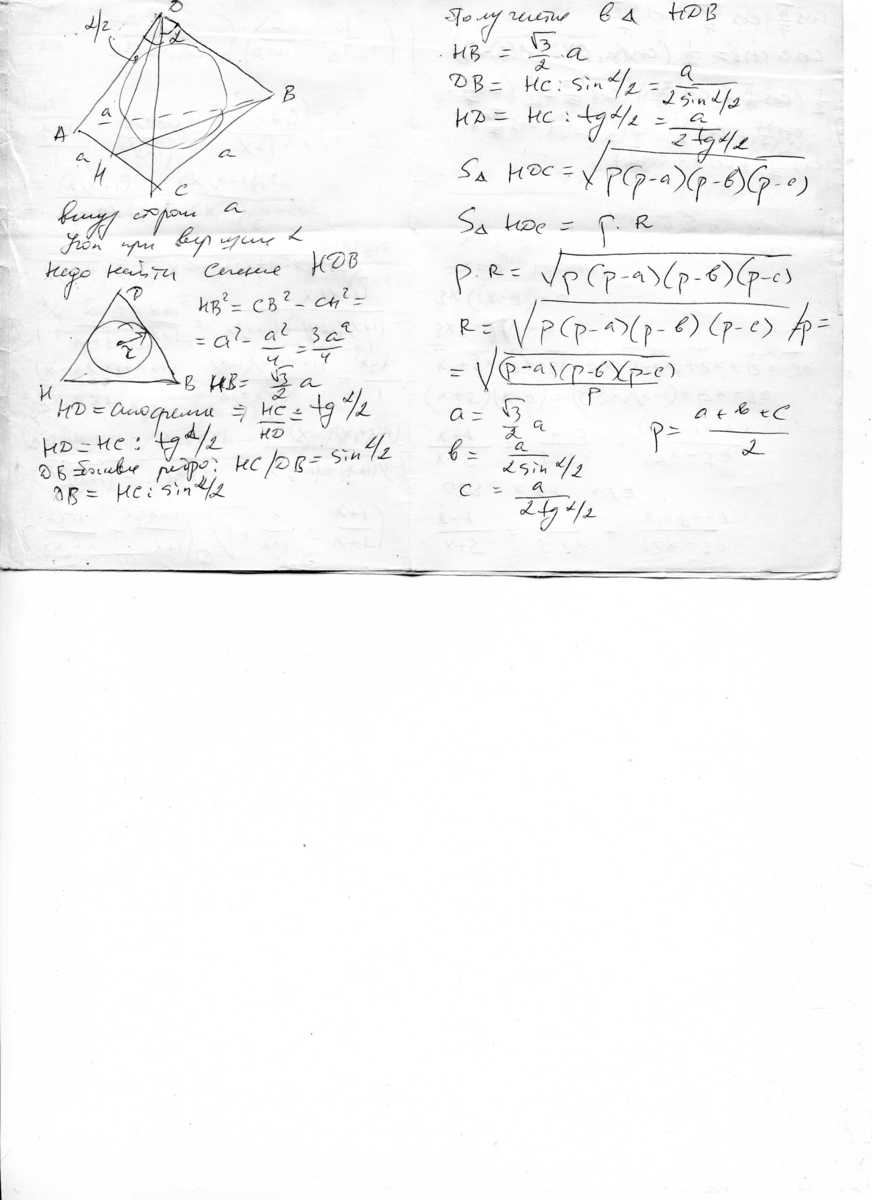 α/2
D
α
a
B
A
a
H
a
C
внизу сторон a
Угол при вершине α
Надо найти сечение HDB
D
r
H
B
HB² = CB² - CH² =
= a² - a²/4 = 3a²/4
HB = √3/2 a
HD = апофема ⇒ HC/HD = tg α/2
HD = HC : tg α/2
DB боковое ребро: HC/DB = sin α/2
DB = HC : sin α/2
Получите в Δ HDB
HB = √3/2 · a
DB = HC : sin α/2 = a/2 sin α/2
HD = HC : tg α/2 = a/2 tg α/2
SΔ HDC = √p(p-a)(p-в)(p-c)
SΔ HDC = p · R
p · R = √p(p-a)(p-в)(p-c)
R = √p(p-a)(p-в)(p-c) /p =
= √(p-a)(p-в)(p-c)/p
a = √3/2 a
p = a+в+c/2
в = a/2 sin α/2
c = a/2 tg α/2